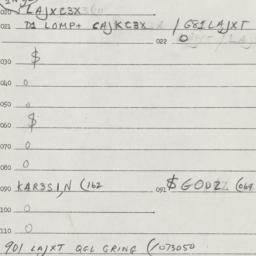 020 LAJXC3X
021 T1 LOMP+ CAJKC3X / G81LAJXT
022 0
030 $
040 0
050 0
060 $
070 0
080 0
090 KAR3SI,N (162 091 $GODZ (064
100 0
110 0
901 LAJXT QGL GRING (/073050